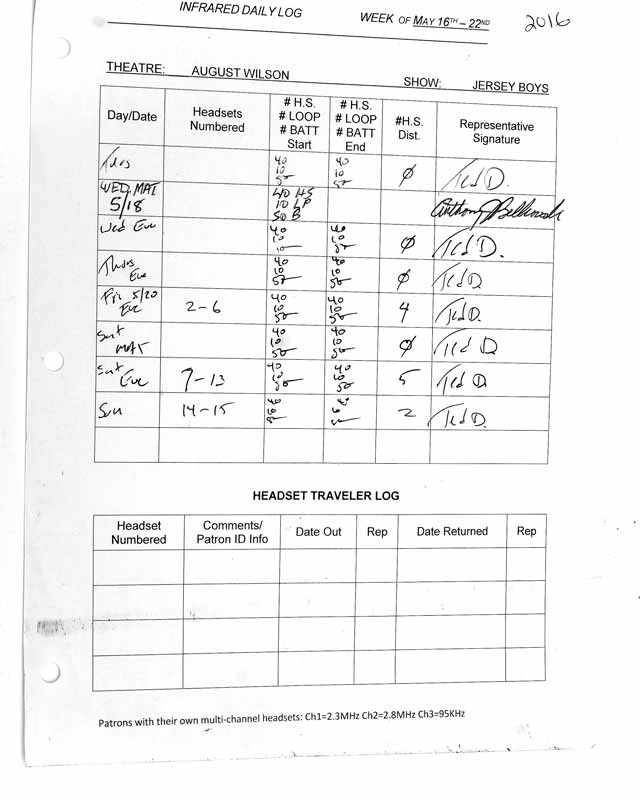 INFRARED DAILY LOG WEEK OF MAY 16TH – 22ND 2016
THEATRE: AUGUST WILSON SHOW: JERSEY BOYS
Day/Date Headsets Numbered # H.S. # LOOP # BATT Start # H.S. # LOOP # BATT End #H.S. Dist. Representative Signature
Tues 40 10 50 40 10 50 Ø Ted D.
WED MAT 5/18 40 HS 10 LP 50 B Anthony
Wed Eve 40 10 10 40 10 50 Ø Ted D.
Thurs Eve 40 10 50 40 10 50 Ø Ted D
Fri 5/20 Eve 2-6 40 10 50 40 10 50 4 Ted D.
Sat MAT 40 10 50 40 10 50 Ø Ted D
Sat Eve 7-13 40 10 50 40 10 50 5 Ted D
Sun 14-15 40 10 50 40 10 50 2 Ted D.
HEADSET TRAVELER LOG
Headset Numbered Comments/ Patron ID Info Date Out Rep Date Returned Rep
Patrons with their own multi-channel headsets: Ch1=2.3MHz Ch2=2.8MHz Ch3=95KHz